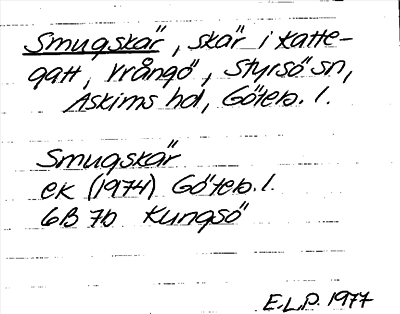 Smugskär, skär i Katte-
gatt, Vrångö, Styrsö sn,
Askims hd, Göteb. l.
Smugskär
ek (1974) Göteb. l.
6B 7b Kungsö
E.L.P. 1977